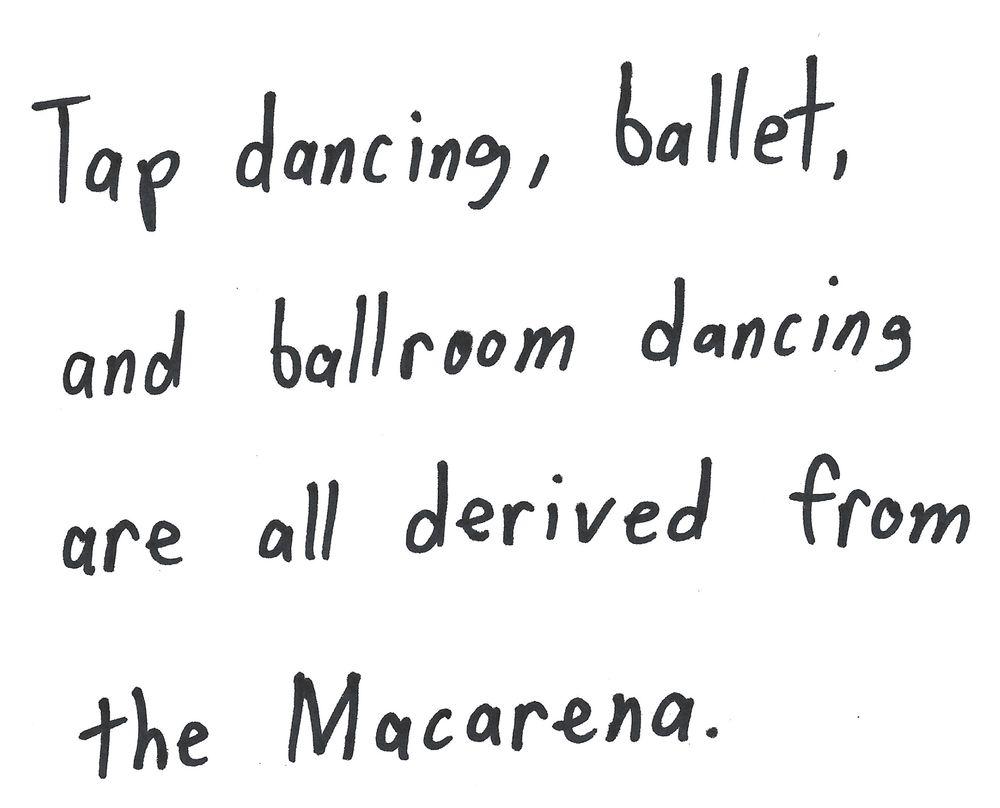 Tap dancing, ballet,
and ballroom dancing
are all derived from
the Macarena.